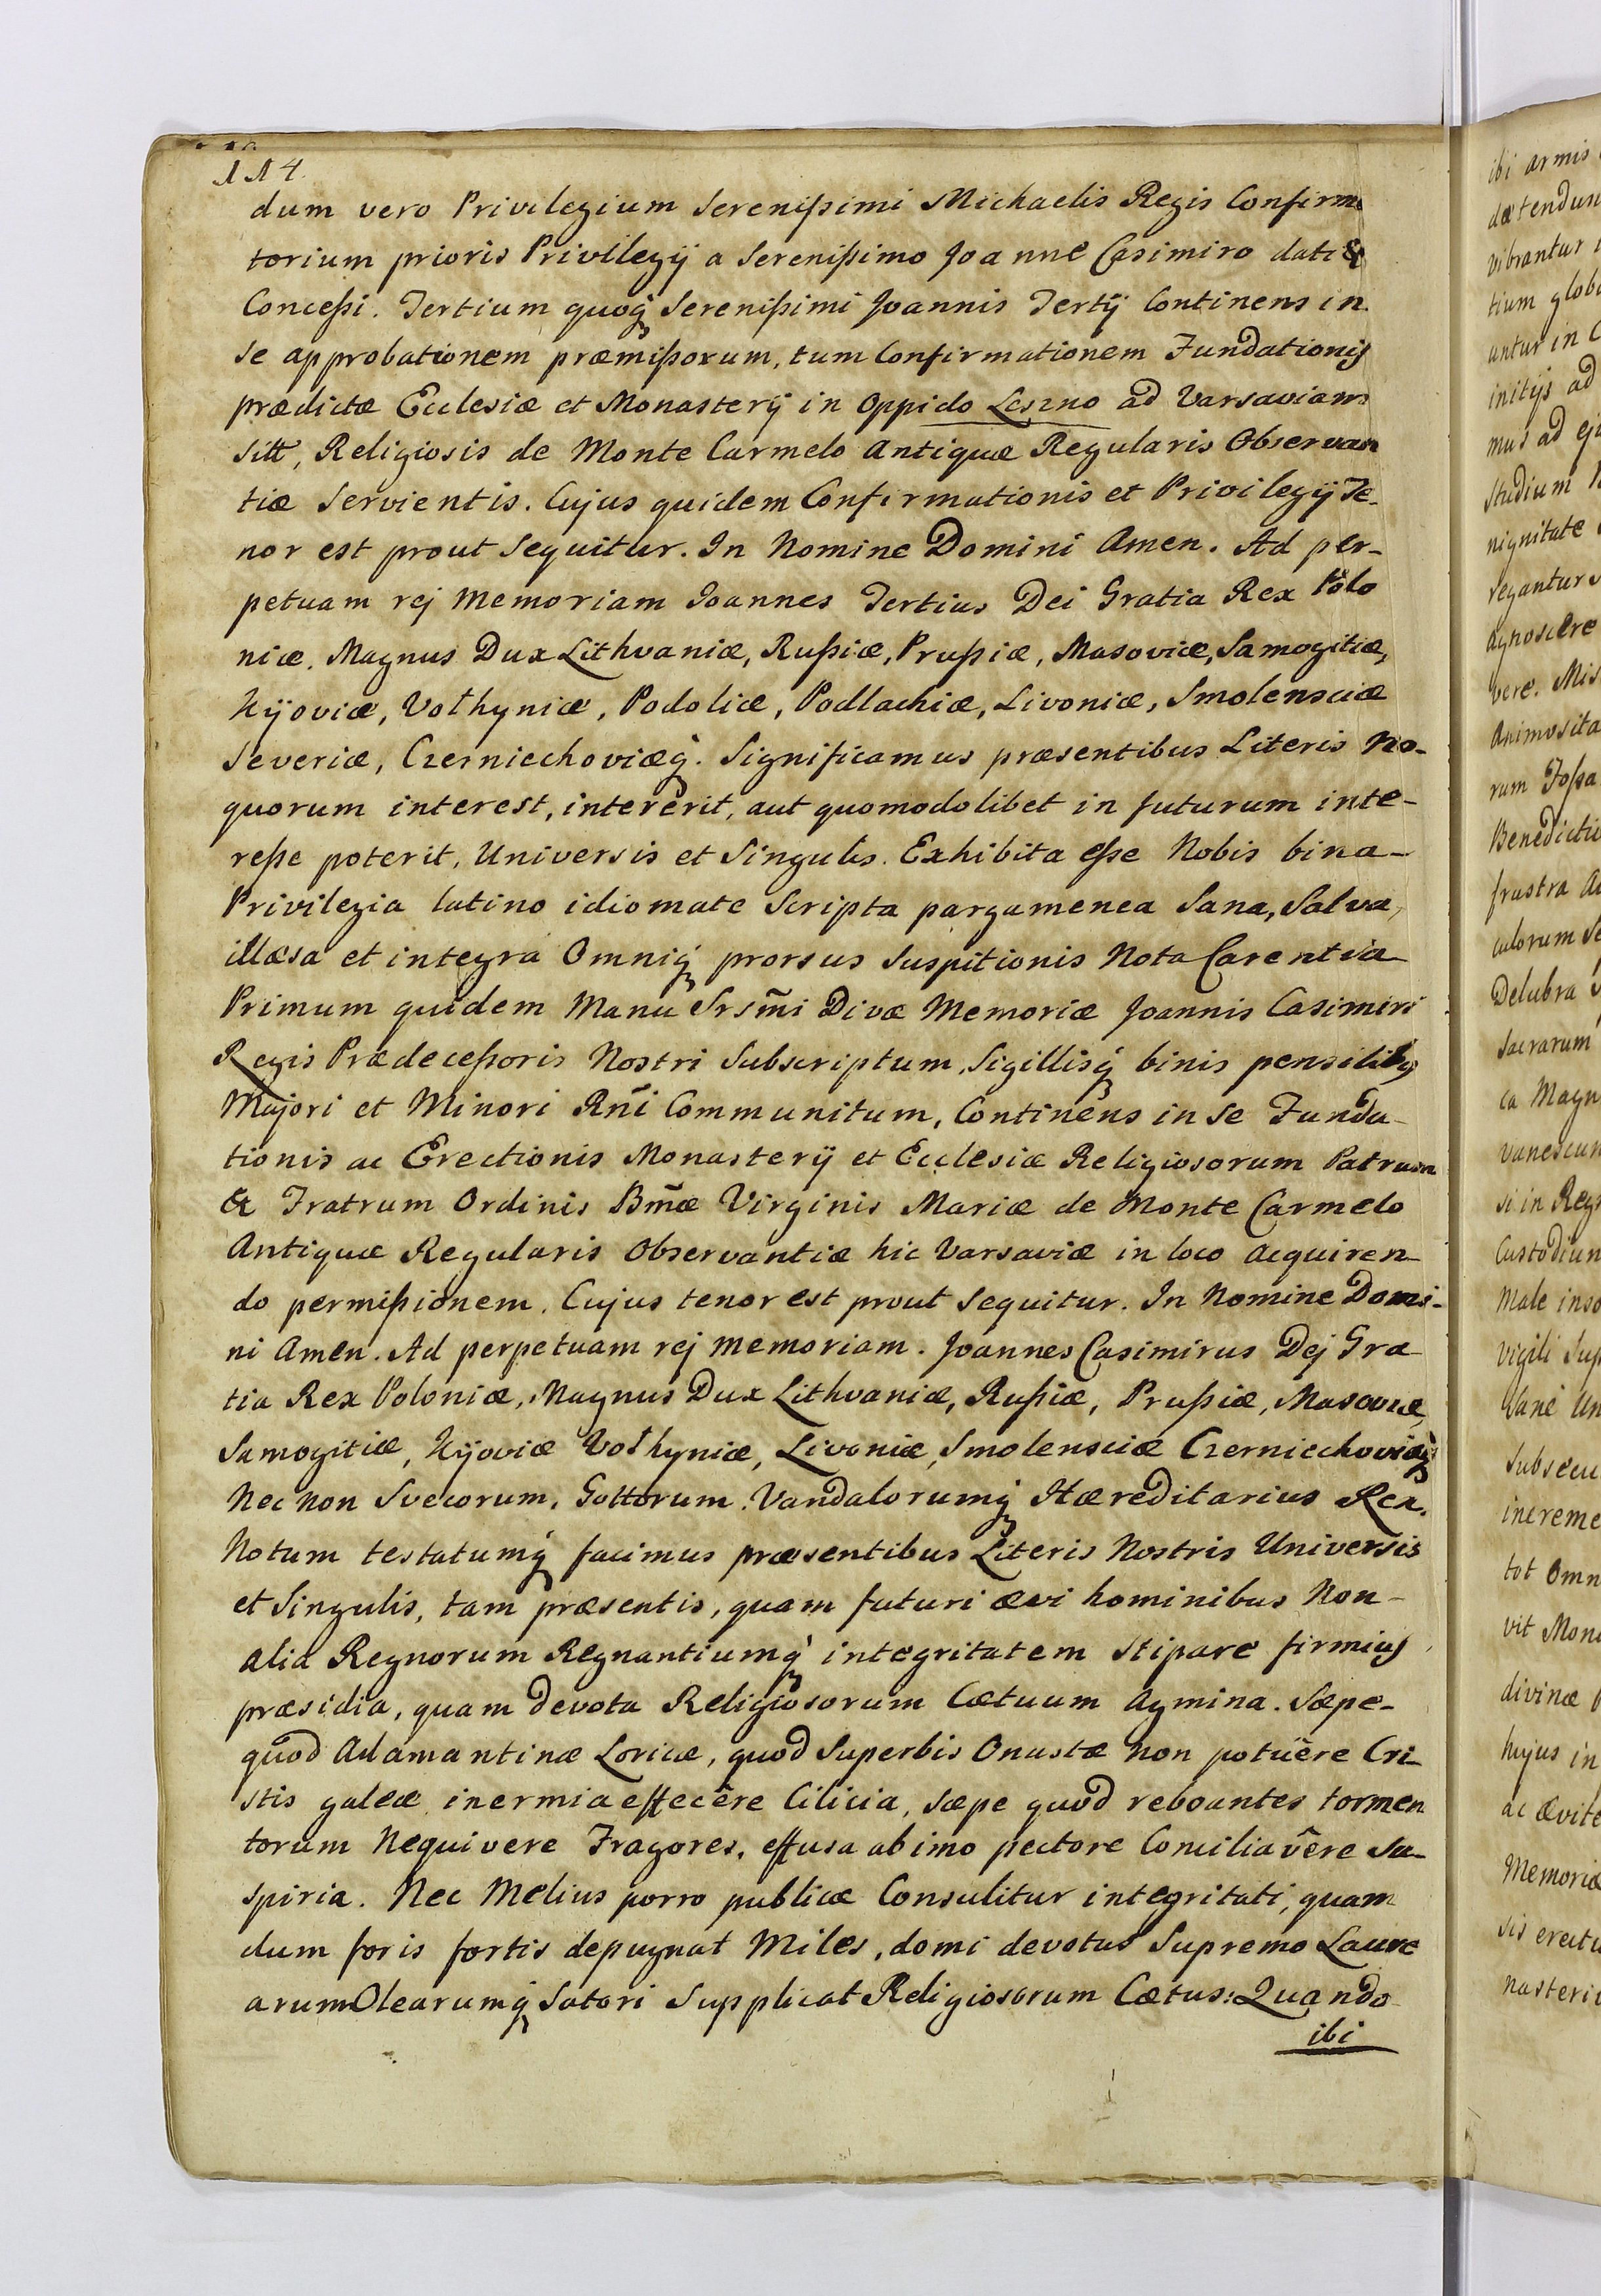 114.
dum vero Privilegium Serenißimi Michaelis Regis Confirma
torium prioris Privilegij a Serenißimo Joanne Casimiro dati &
Conceßi. Tertium quoq̃ Serenißimi Joannis Tertij Continens in
se approbationem præmißorum, tum Confirmationem Fundationis
prædictæ Ecclesiæ et Monasterij in Oppido Leszno ad Varsaviam
sitt, Religiosis de Monte Carmelo Antiquæ Regularis Observan
tiæ Servientis. Cujus quidem Confirmationis et Privilegij Te-
nor est prout Sequitur. In Nomine Domini Amen. Ad per-
petuam rej Memoriam Joannes Tertius Dei Gratia Rex Polo
niæ. Magnus Dux Lithvaniæ, Rußiæ, Prußiæ, Masoviæ, Samogitiæ,
Kijoviæ, Volhyniæ, Podoliæ, Podlachiæ, Livoniæ, Smolensciæ
Severiæ, Czerniechoviæq̃. Significamus præsentibus Literis No-
quorum interest, intererit, aut quomodolibet in futurum inte-
reße poterit, Universis et Singulis. Exhibita eße Nobis bina-
Privilegia latino idiomate Scripta pargamenea Sana, Salva,
illæsa et integra Omniq̃ prorsus Suspitionis Nota Carentia
Primum quidem Manu Srsm̃i Divæ Memoriæ Joannis Casimiri
Regis Prædeceßoris Nostri Subscriptum, Sigillisq̃ binis pensilibs
Majori et Minori Rñi Communitum, Continens in Se Funda-
tionis ac Erectionis Monasterij et Ecclesiæ Religiosorum Patrum
& Fratrum Ordinis Bm̃æ Virginis Mariæ de Monte Carmelo
Antiquæ Regularis Observantiæ hic Varsaviæ in loco Acquiren-
do permißionem. Cujus tenor est prout Sequitur. In Nomine Domi-
ni Amen. Ad perpetuam rej memoriam. Joannes Casimirus Dej Gra
tia Rex Poloniæ, Magnus Dux Lithvaniæ, Rußiæ, Prußiæ, Masoviæ,
Samogitiæ, Kijoviæ Volhyniæ, Livoniæ, Smolensciæ Czerniechoviæq̃
Nec non Svecorum, Gottorum, Vandalorumq̃ Hæreditarius Rex.
Notum testatumq̃ facimus præsentibus Literis Nostris Universis
et Singulis, tam præsentis, quam futuri ævi hominibus Non-
alia Regnorum Regnantiumq̃ integritatem Stipare firmius
præsidia, quam devota Religiosorum Cætuum Agmina. Sæpe-
quod Adamantinæ Loricæ, quod Superbis Onustæ non potuêre Cri-
stis galeæ inermia effecêre Cilicia, sæpe quod reboantes tormen
torum Nequivere Fragores, effusa ab imo pectore Conciliavêre Su-
spiria. Nec Melius porro publicæ Consulitur integritati, quam
dum foris fortis depugnat Miles, domi devotus Supremo Laure
arum Olearumq̃ Satori Supplicat Religiosorum Cætus: Quando
ibi
ibi armis
tium glob
initijs ad
Studium
nignitate
regantur
Agnoscere
vere. Mis
Animosita
rum Foßa
frustra
Delubra
Sacrarum
ca Magn
si in Reg
Custodiun
Male inso
vigili Sup
Subsecu
increme
tot Omn
vit Mon
divinæ
hujus in
ac ævite
Memoriæ
nasteri